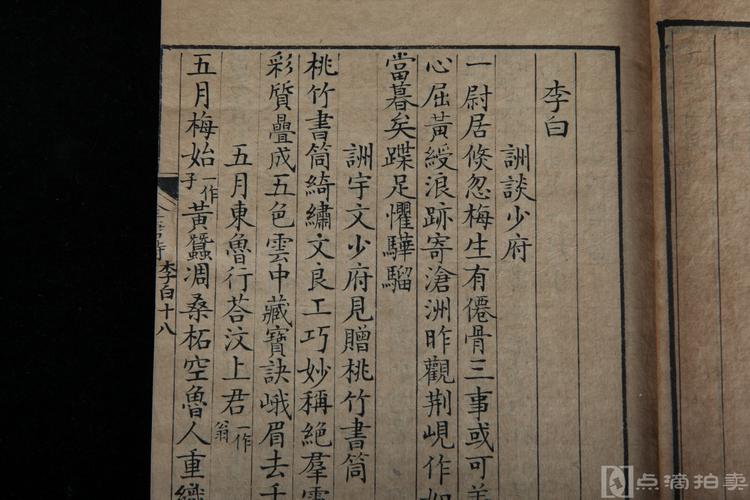 李白
詶談少府
一尉居倏忽梅生有僊骨三事或可羞
心屈黃綬浪跡寄滄洲昨觀荆峴作如
當暮矣蹀足懼驊騮
詶宇文少府見贈桃竹書筒
桃竹書筒綺繡文良工巧妙稱絕羣靈
彩質疊成五色雲中藏寶訣峨眉去千
五月東魯行荅汶上君一作翁
五月梅始一作子黃蠶凋桑柘空魯人重織
李白十八
点滴拍卖